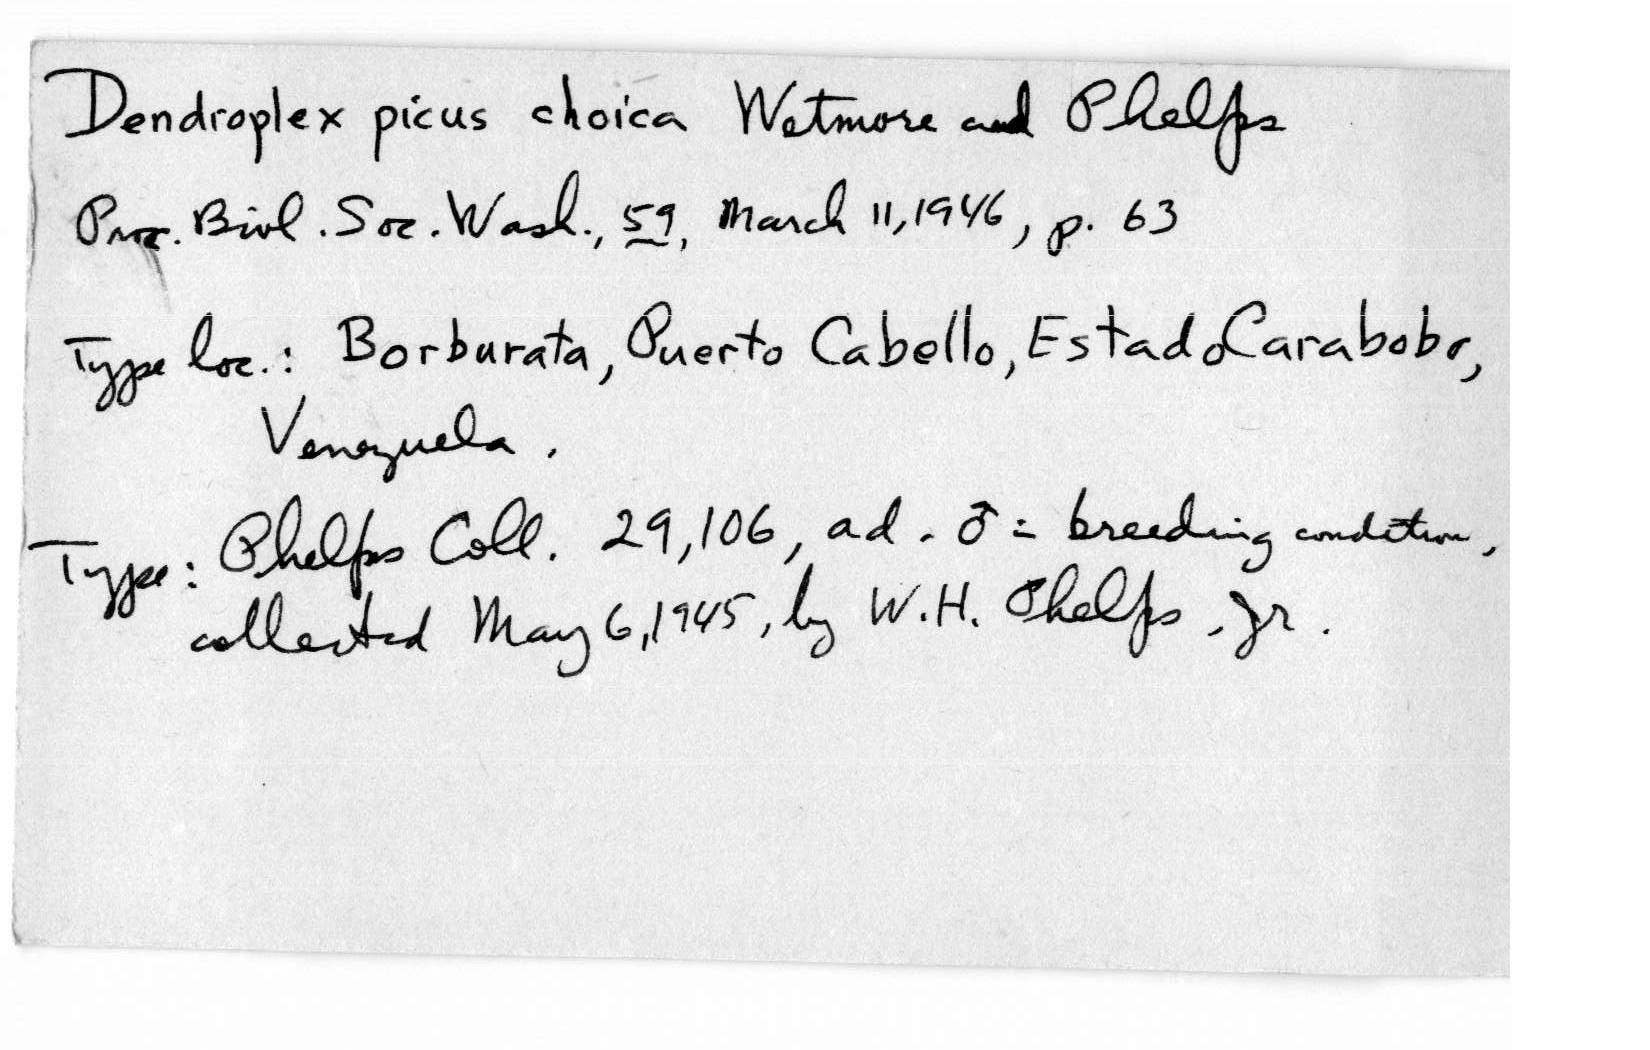 Dendroplex picus choica Wetmore and Phelps
Proc. Biol. Soc. Wash., 59, March 11, 1946, p. 63
Type loc.: Borburata, Puerto Cabello, Estado Carabobo,
Venezuela.
Type: Phelps Coll. 29,106, ad. ♂ = breeding condition,
collected May 6, 1945, by W.H. Phelps, Jr.